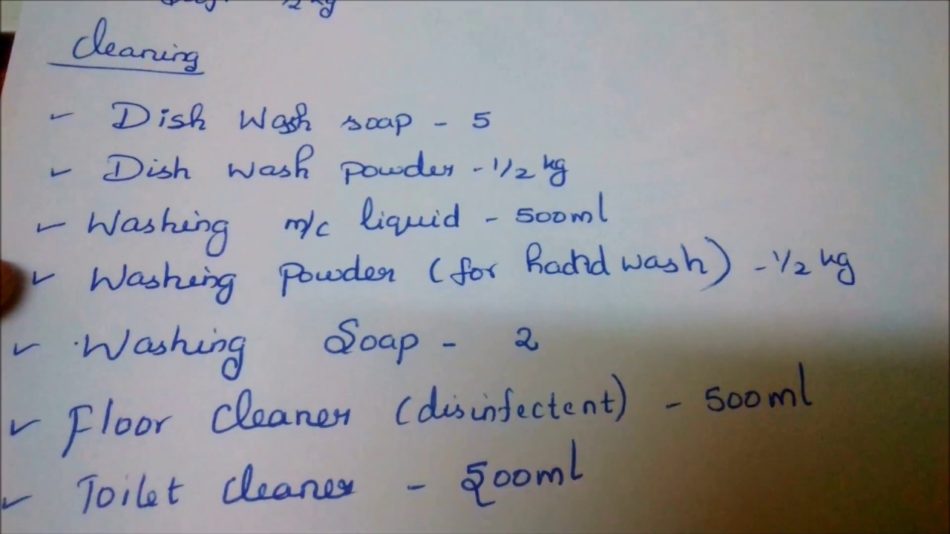 1/2 kg
Cleaning
✓ Dish wash soap - 5
✓ Dish wash powder - 1/2 kg
✓ Washing m/c liquid - 500ml
✓ Washing powder (for hadnd wash) - 1/2 kg
✓ Washing Soap - 2
✓ Floor cleaner (disinfectent) - 500ml
✓ Toilet cleaner - 500ml